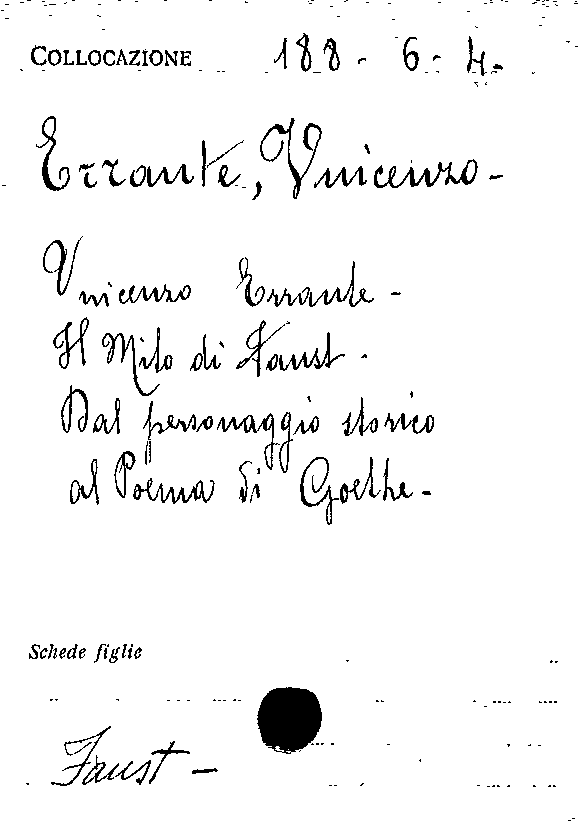 COLLOCAZIONE 188 - 6 - 4 -
Errante, Vincenzo -
Vincenzo Errante -
Il Mito di Faust -
Dal personaggio storico
al Poema di Goethe -
Schede figlie
Faust -